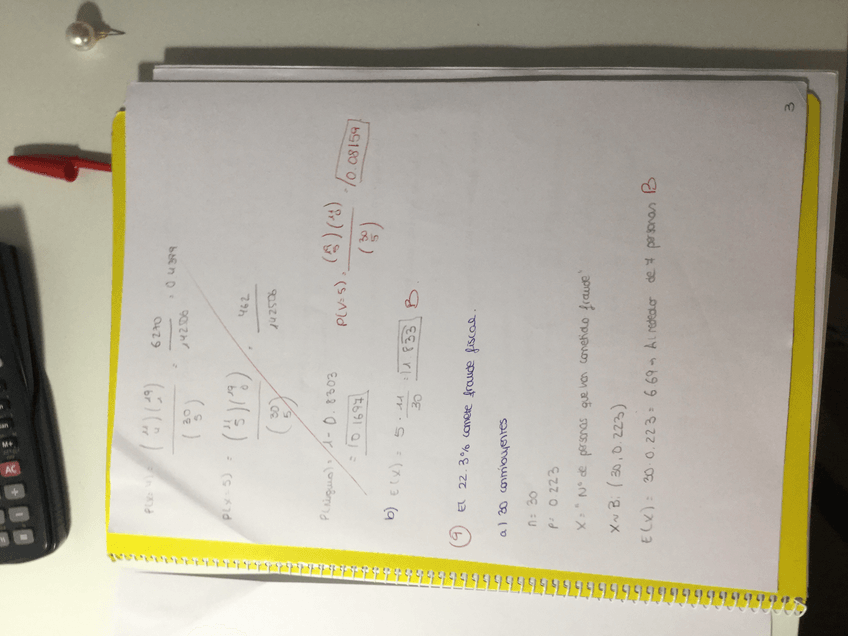 P(x=4) = (11 4)(19 1) / (30 5) = 6270 / 142506 = 0.4399
P(x=5) = (11 5)(19 0) / (30 5) = 462 / 142506
P(ninguna) = 1 - 0.8303
= 0.1697
P(V=5) = (19 5)(11 0) / (30 5) = 0.08159
b) E(x) = 5 · 11 / 30 = 1.833 B.
9 El 22.3% comete fraude fiscal.
a) 30 contribuyentes
n = 30
p = 0.223
X = "Nº de personas que han cometido fraude"
X ~ B. (30, 0.223)
E(X) = 30 · 0.223 = 6.69 → Alrededor de 7 personas B
3
M+
AC